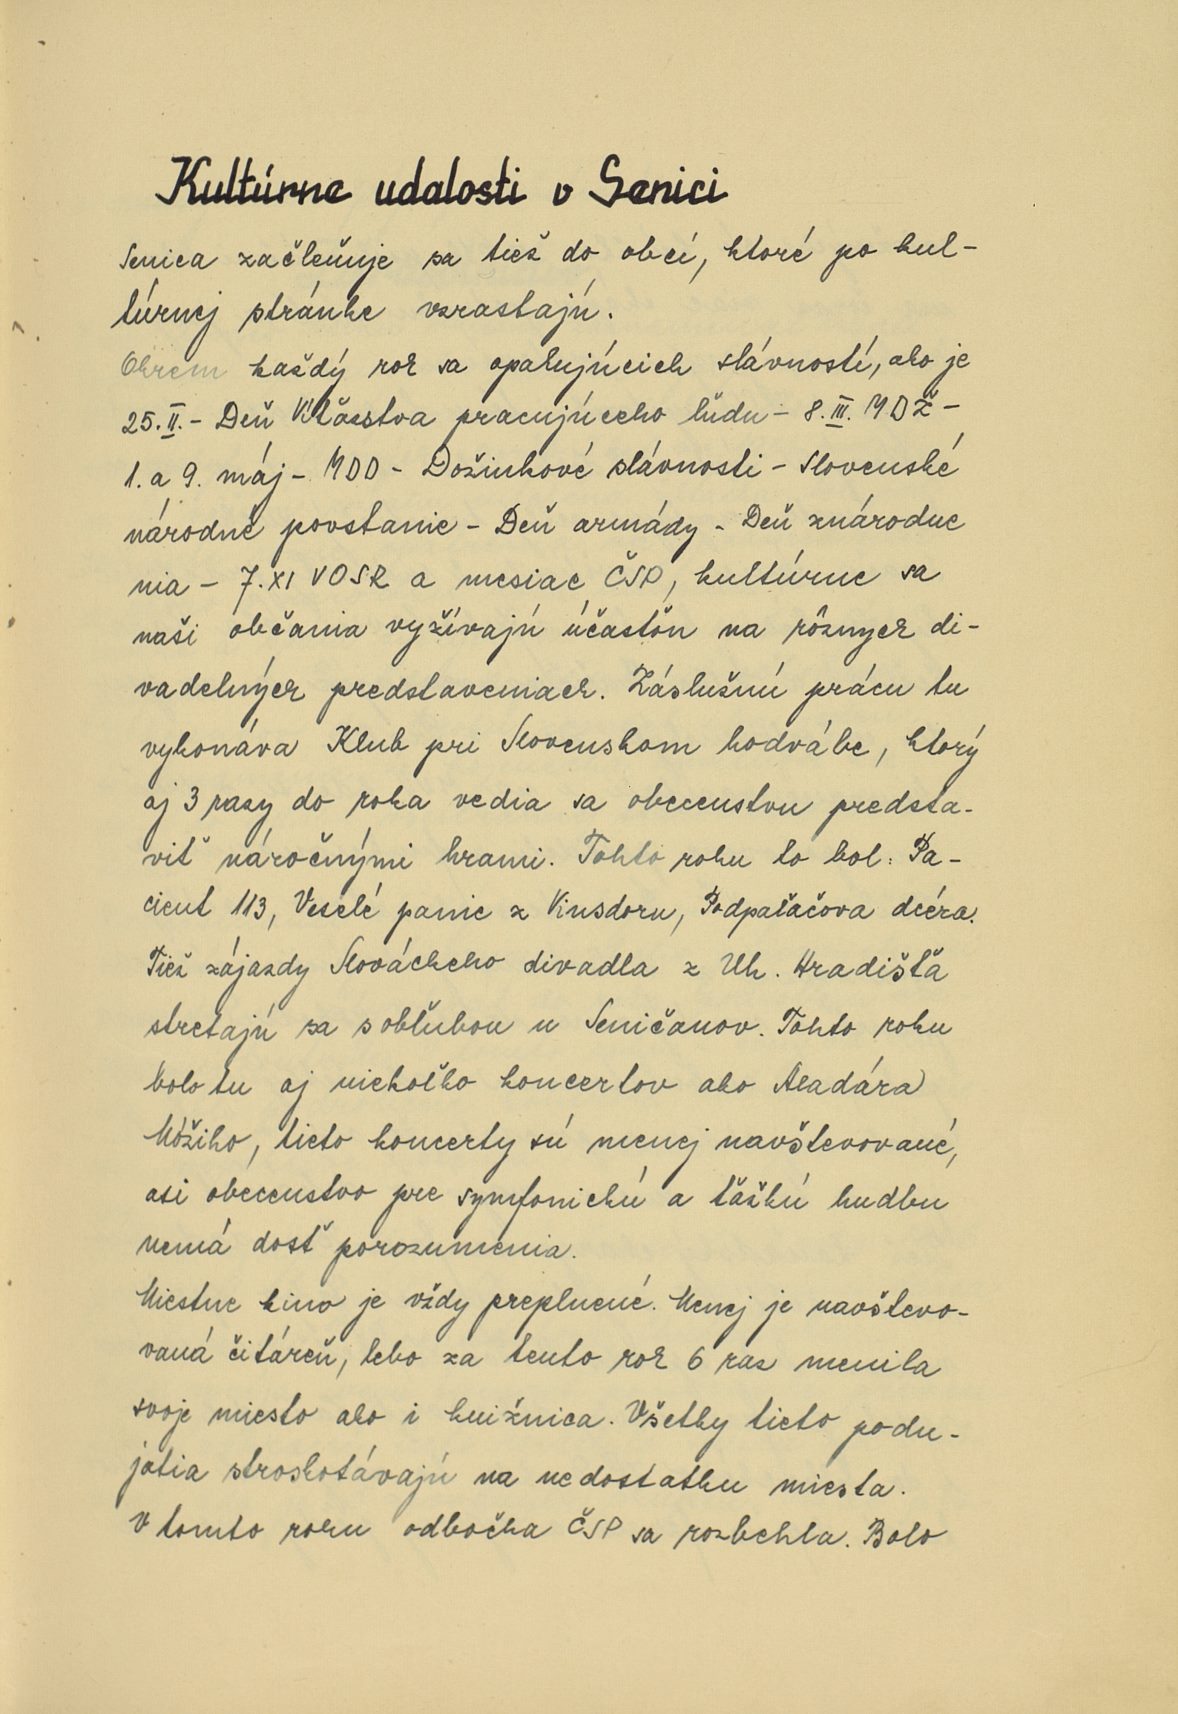 Kultúrne udalosti v Senici
Senica začleňuje sa tiež do obcí, ktoré po kul-
túrnej stránke vzrastajú.
Okrem každý rok sa opakujúcich slávností, ako je
25.II.- Deň Víťazstva pracujúceho ľudu - 8.III. MDŽ -
1. a 9. máj - MDD - Dožinkové slávnosti - Slovenské
národné povstanie - Deň armády - Deň znárodne
nia - 7.XI VOSR a mesiac ČSP, kultúrne sa
naši občania vyžívajú účasťou na rôznych di-
vadelných predstaveniach. Záslužnú prácu tu
vykonáva Klub pri Slovenskom hodvábe, ktorý
aj 3 razy do roka vedia sa obecenstvu predsta-
viť náročnými hrami. Tohto roku to bol: Pa-
cient 113, Veselé panie z Vinsdoru, Podpaľačova dcéra.
Tiež zájazdy Slováckeho divadla z Uh. Hradišťa
stretajú sa s obľubou u Seničanov. Tohto roku
bolo tu aj niekoľko koncertov ako Aladára
Móžiho, tieto koncerty sú menej navštevované,
asi obecenstvo pre symfonickú a ťažkú hudbu
nemá dosť porozumenia.
Miestne kino je vždy preplnené. Menej je navštevo-
vaná čitáreň, lebo za tento rok 6 raz menila
svoje miesto ako i knižnica. Všetky tieto podu-
jatia stroskotávajú na nedostatku miesta.
V tomto roku odbočka ČSP sa rozbehla. Bolo